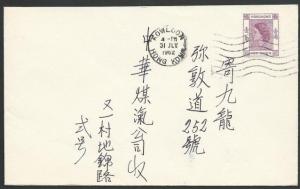 KOWLOON
4 - PM
31 JLY
1962
HONG KONG
HONG KONG
寄九龍
弥敦道252號
中華煤氣公司收
又一村地錦路
弍号